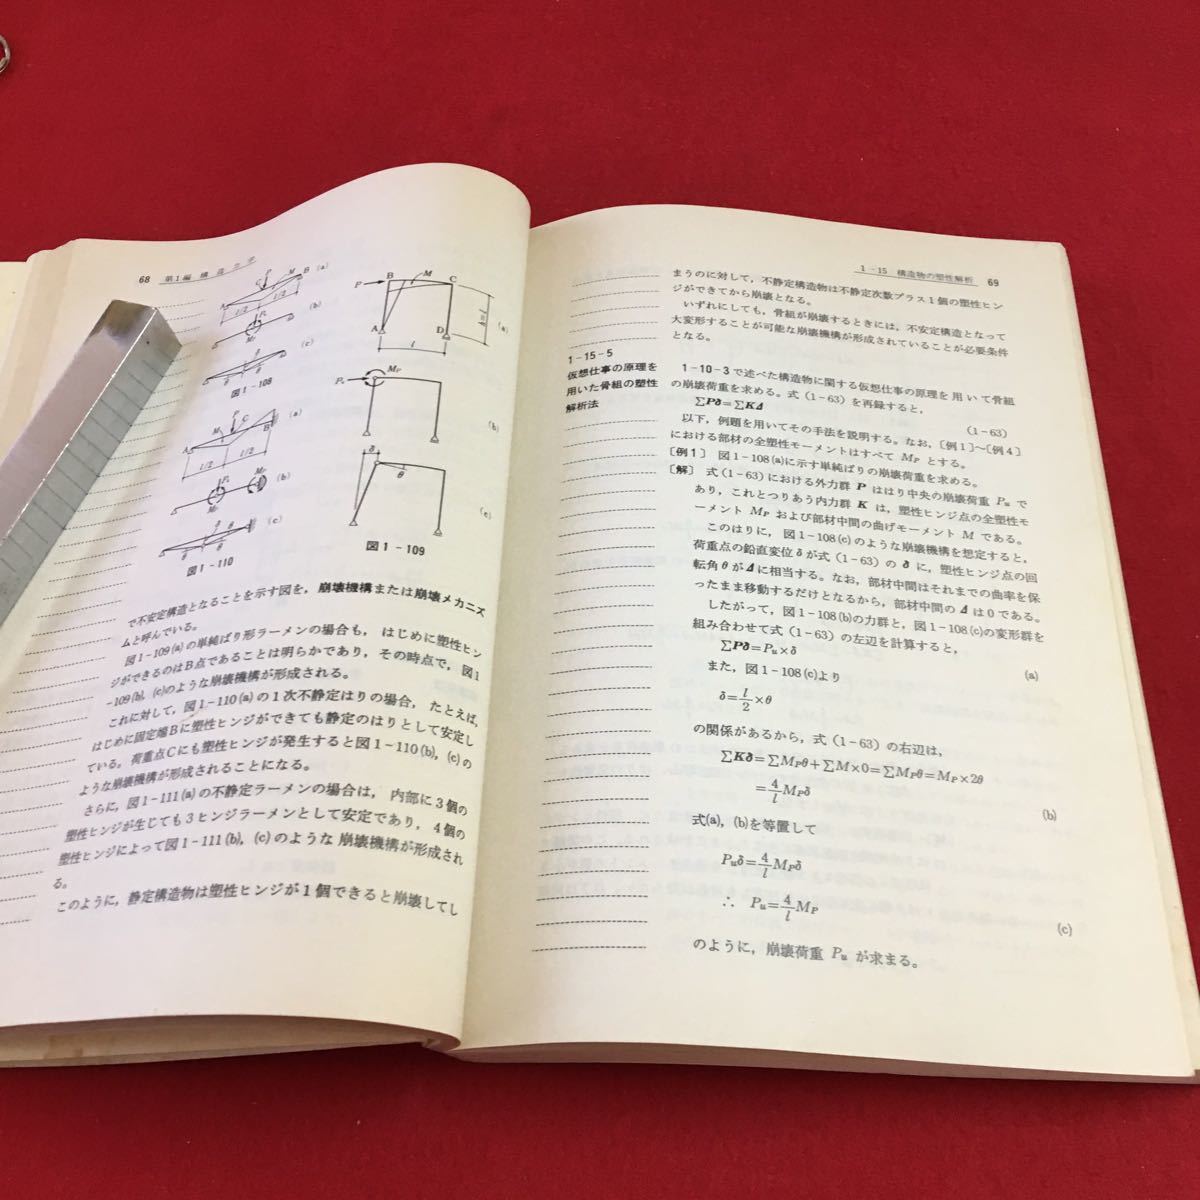 68 第1編 構造力学
P
M
B
(a)
C
A
l/2
l/2
(b)
Pu
MP
(c)
θ
θ
図1-108
P
(a)
M
C
B
A
l/2
l/2
MP
(b)
Pu
MP
(c)
θ
θ
図1-110
B
M
C
P
A
D
h=l
(a)
l
MP
Pu
(b)
δ
θ
(c)
図1-109
で不安定構造となることを示す図を，崩壊機構または崩壊メカニズ
ムと呼んでいる。
図1-109(a)の単純ばり形ラーメンの場合も，はじめに塑性ヒン
ジができるのはB点であることは明らかであり，その時点で，図1
-109(b)，(c)のような崩壊機構が形成される。
これに対して，図1-110(a)の1次不静定はりの場合，たとえば，
はじめに固定端Bに塑性ヒンジができても静定のはりとして安定し
ている。荷重点Cにも塑性ヒンジが発生すると図1-110(b)，(c)の
ような崩壊機構が形成されることになる。
さらに，図1-111(a)の不静定ラーメンの場合は，内部に3個の
塑性ヒンジが生じても3ヒンジラーメンとして安定であり，4個の
塑性ヒンジによって図1-111(b)，(c)のような崩壊機構が形成され
る。
このように，静定構造物は塑性ヒンジが1個できると崩壊してし
1-15 構造物の塑性解析 69
まうのに対して，不静定構造物は不静定次数プラス1個の塑性ヒン
ジができてから崩壊となる。
いずれにしても，骨組が崩壊するときには，不安定構造となって
大変形することが可能な崩壊機構が形成されていることが必要条件
となる。
1-15-5
仮想仕事の原理を
用いた骨組の塑性
解析法
1-10-3で述べた構造物に関する仮想仕事の原理を用いて骨組
の崩壊荷重を求める。式(1-63)を再録すると，
ΣPδ=ΣKΔ (1-63)
以下，例題を用いてその手法を説明する。なお，〔例1〕～〔例4〕
における部材の全塑性モーメントはすべて MP とする。
〔例1〕 図1-108(a)に示す単純ばりの崩壊荷重を求める。
〔解〕 式(1-63)における外力群 P ははり中央の崩壊荷重 Pu で
あり，これとつりあう内力群 K は，塑性ヒンジ点の全塑性モ
ーメント MP および部材中間の曲げモーメント M である。
このはりに，図1-108(c)のような崩壊機構を想定すると，
荷重点の鉛直変位 δ が式(1-63)の δ に，塑性ヒンジ点の回
転角 θ が Δ に相当する。なお，部材中間はそれまでの曲率を保
ったまま移動するだけとなるから，部材中間の Δ は0である。
したがって，図1-108(b)の力群と，図1-108(c)の変形群を
組み合わせて式(1-63)の左辺を計算すると，
ΣPδ=Pu×δ (a)
また，図1-108(c)より
δ=l/2×θ
の関係があるから，式(1-63)の右辺は，
ΣKδ=ΣMPθ+ΣM×0=ΣMPθ=MP×2θ
=4/l MPδ (b)
式(a)，(b)を等置して
Puδ=4/l MPδ
∴ Pu=4/l MP (c)
のように，崩壊荷重 Pu が求まる。